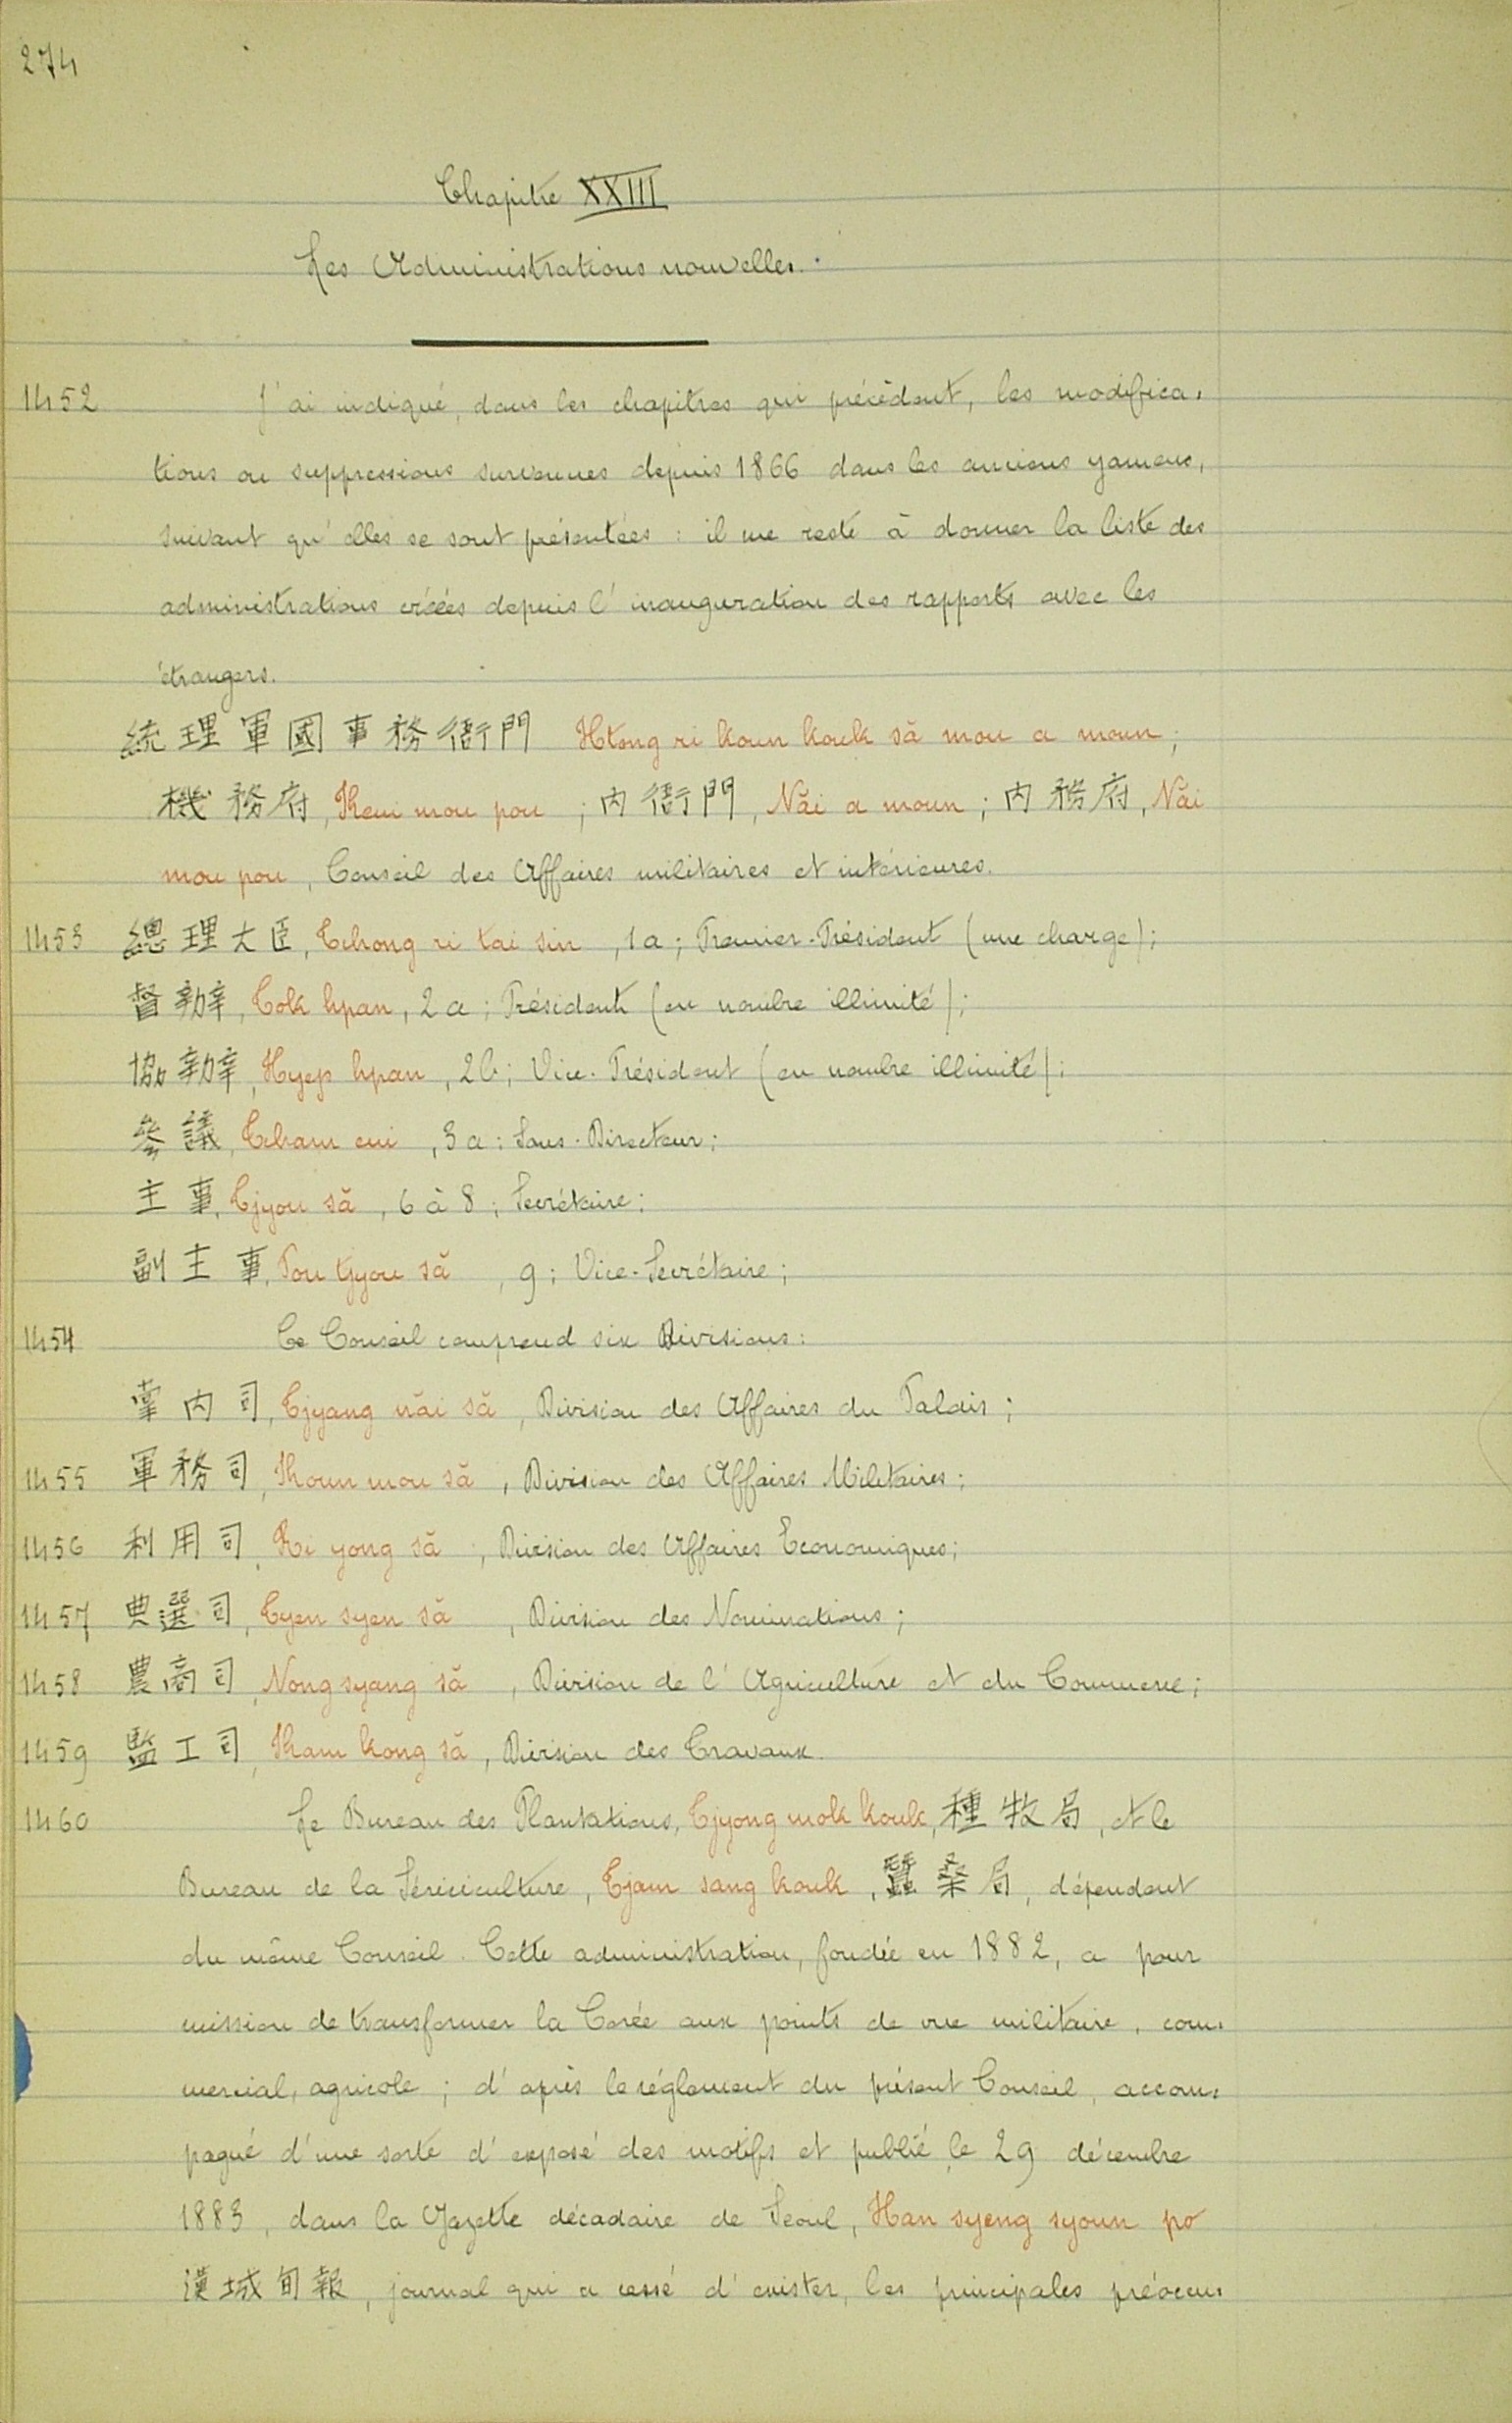 274
Chapitre XXIII
Les Administrations nouvelles.
1452 J'ai indiqué, dans les chapitres qui précèdent, les modifica-
tions ou suppressions survenues depuis 1866 dans les anciens yamens,
suivant qu'elles se sont présentées : il me reste à donner la liste des
administrations créées depuis l'inauguration des rapports avec les
étrangers.
統理軍國事務衙門 Htong ri koun kouk să mou a moun ;
機務府, Keui mou pou ; 內衙門, Năi a moun ; 內務府, Năi
mou pou, Conseil des Affaires militaires et intérieures.
1453 總理大臣, Tchong ri tai sin, 1a ; Premier-Président (une charge) ;
督辦, Tok hpan, 2a ; Président (en nombre illimité) ;
協辦, Hyep hpan, 2b ; Vice-Président (en nombre illimité) ;
參議, Tcham eui, 3a ; Sous-Directeur ;
主事, Tjyou să, 6 à 8 ; Secrétaire ;
副主事, Pou tjyou să, 9 ; Vice-Secrétaire ;
1454 Ce Conseil comprend six Divisions :
掌內司, Tjyang năi să, Division des Affaires du Palais ;
1455 軍務司, Koun mou să, Division des Affaires Militaires ;
1456 利用司, Ri yong să, Division des Affaires Economiques ;
1457 典選司, Tyen syen să, Division des Nominations ;
1458 農商司, Nong syang să, Division de l'Agriculture et du Commerce ;
1459 監工司, Kam kong să, Division des Travaux.
1460 Le Bureau des Plantations, Tjyong mok kouk, 種牧局, et le
Bureau de la Sériciculture, Tjam sang kouk, 蠶桑局, dépendent
du même Conseil. Cette administration, fondée en 1882, a pour
mission de transformer la Corée aux points de vue militaire, com-
mercial, agricole ; d'après le réglement du présent Conseil, accom-
pagné d'une sorte d'exposé des motifs et publié le 29 décembre
1883, dans la Gazette décadaire de Seoul, Han syeng syoun po
漢城旬報, journal qui a cessé d'exister, les principales préoccu-